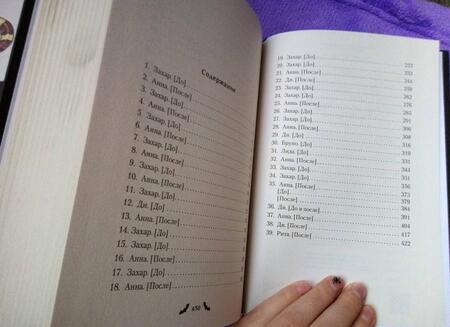 Содержание
1. Захар. [До]
2. Анна. [После]
3. Захар. [До]
4. Анна. [После]
5. Захар. [До]
6. Анна. [После]
7. Захар. [До]
8. Анна. [После]
9. Захар. [До]
10. Анна. [После]
11. Захар. [До]
12. Ди. [До]
13. Анна. [После]
14. Захар. [До]
15. Захар. [До]
16. Анна. [После]
17. Захар. [До]
18. Анна. [После]
450
19. Захар. [До]
20. Захар. [До]
21. Анна. [После]
22. Ди. [После]
23. Захар. [До] 265
24. Захар. [До] 276
25. Анна. [После]
26. Захар. [До] 285
27. Захар. [До] 291
28. Анна. [После] 308
29. Ди. [До] 316
30. Бруно. [До] 329
31. Лида. [До] 331
32. Анна. [После] 341
33. Захар. [До] 355
34. Захар. [До] 365
35. Анна. [После] 375
[До] 377
[После] 384
36. Ди. [До и после] 391
37. Анна. [После] 404
38. Ди. [После] 417
39. Рита. [После] 422